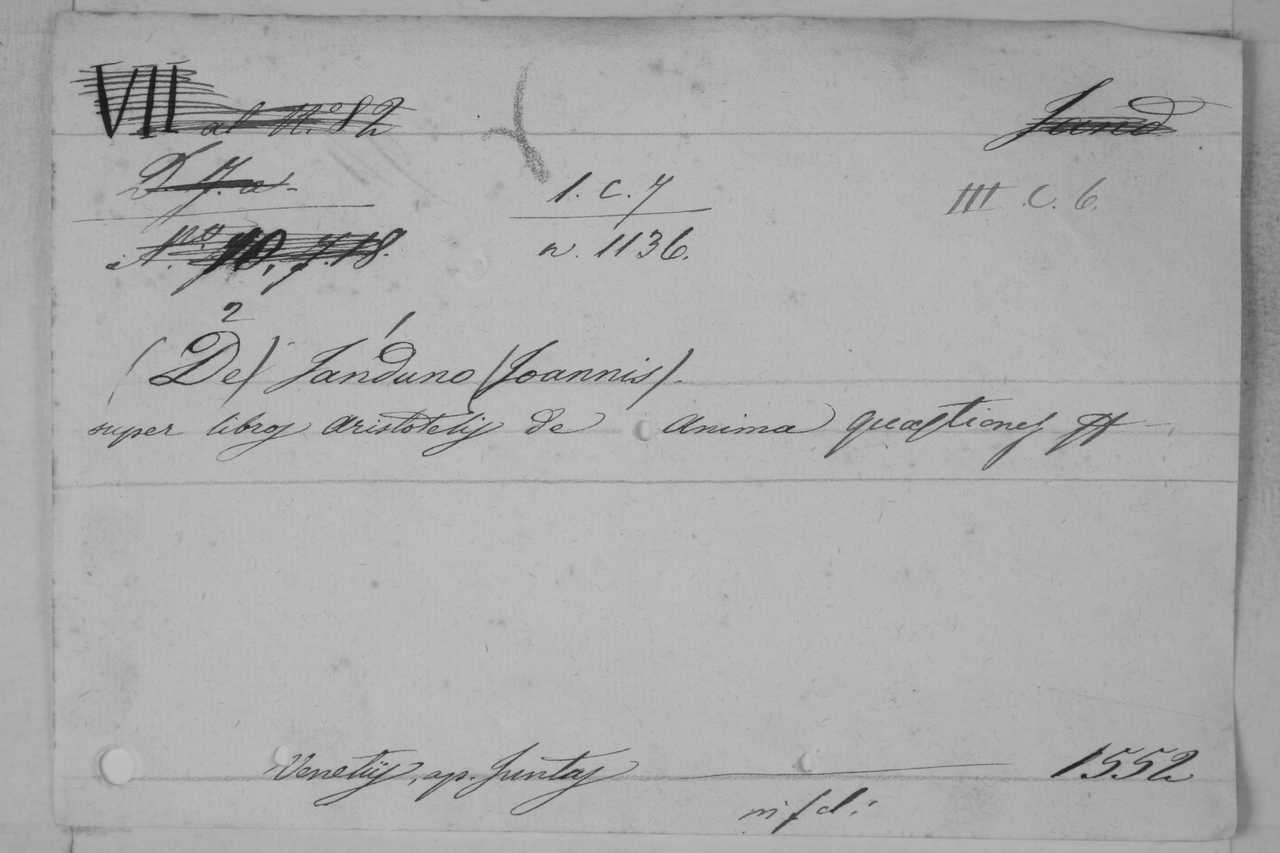 VII al N.º 82
Jand
D. J. a.
1. C. 7
III. C. 6.
N.ro 90, J. 18.
n. 1136.
2 1
(De) Janduno (Joannis).
super libros Aristotelis de anima quaestiones ff
Venetiis, ap. Juntas 1552
in fol: